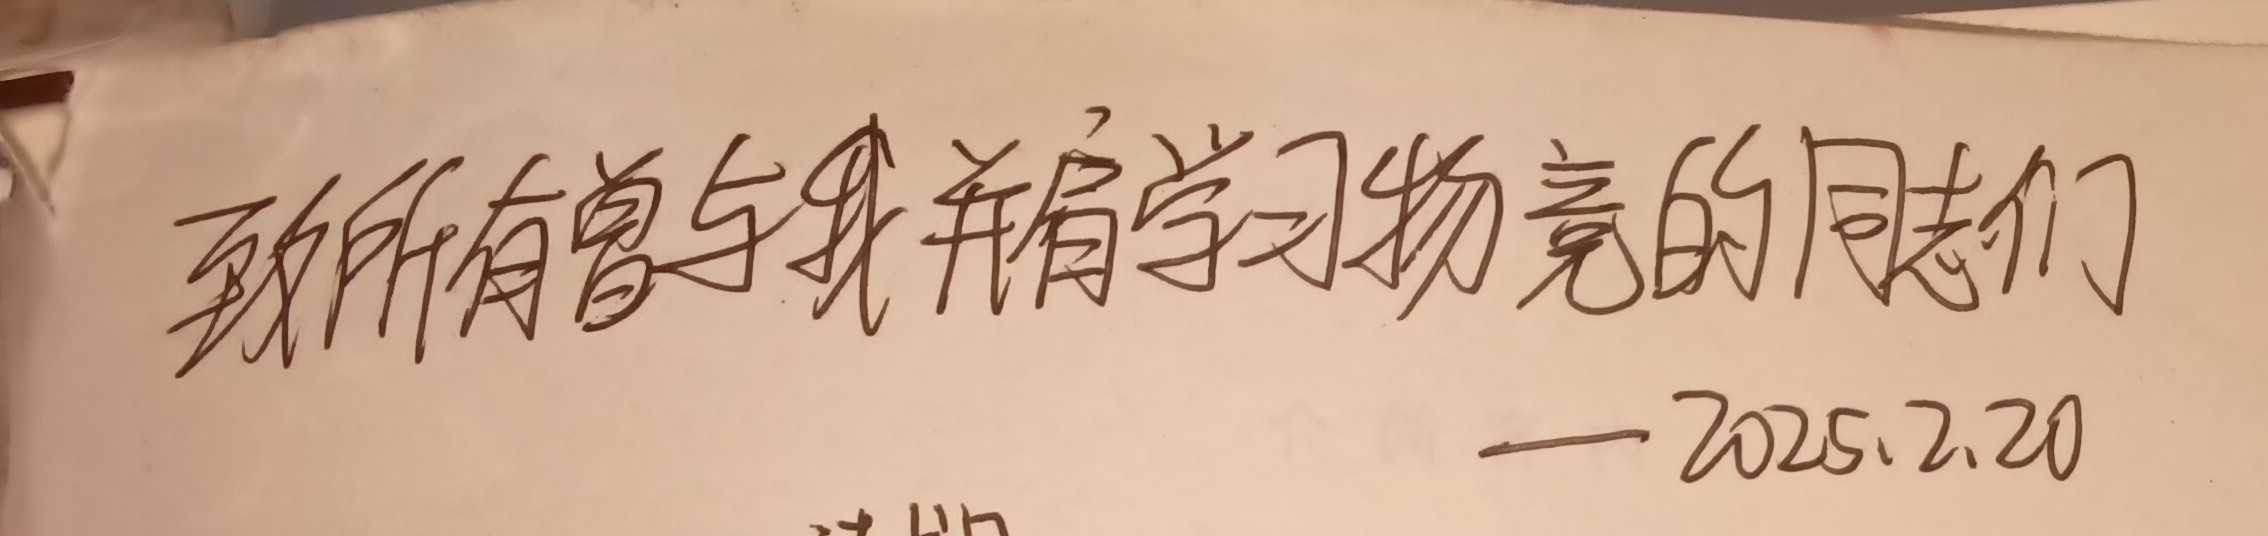 致所有曾与我并肩学习物竞的同志们
—2025.2.20